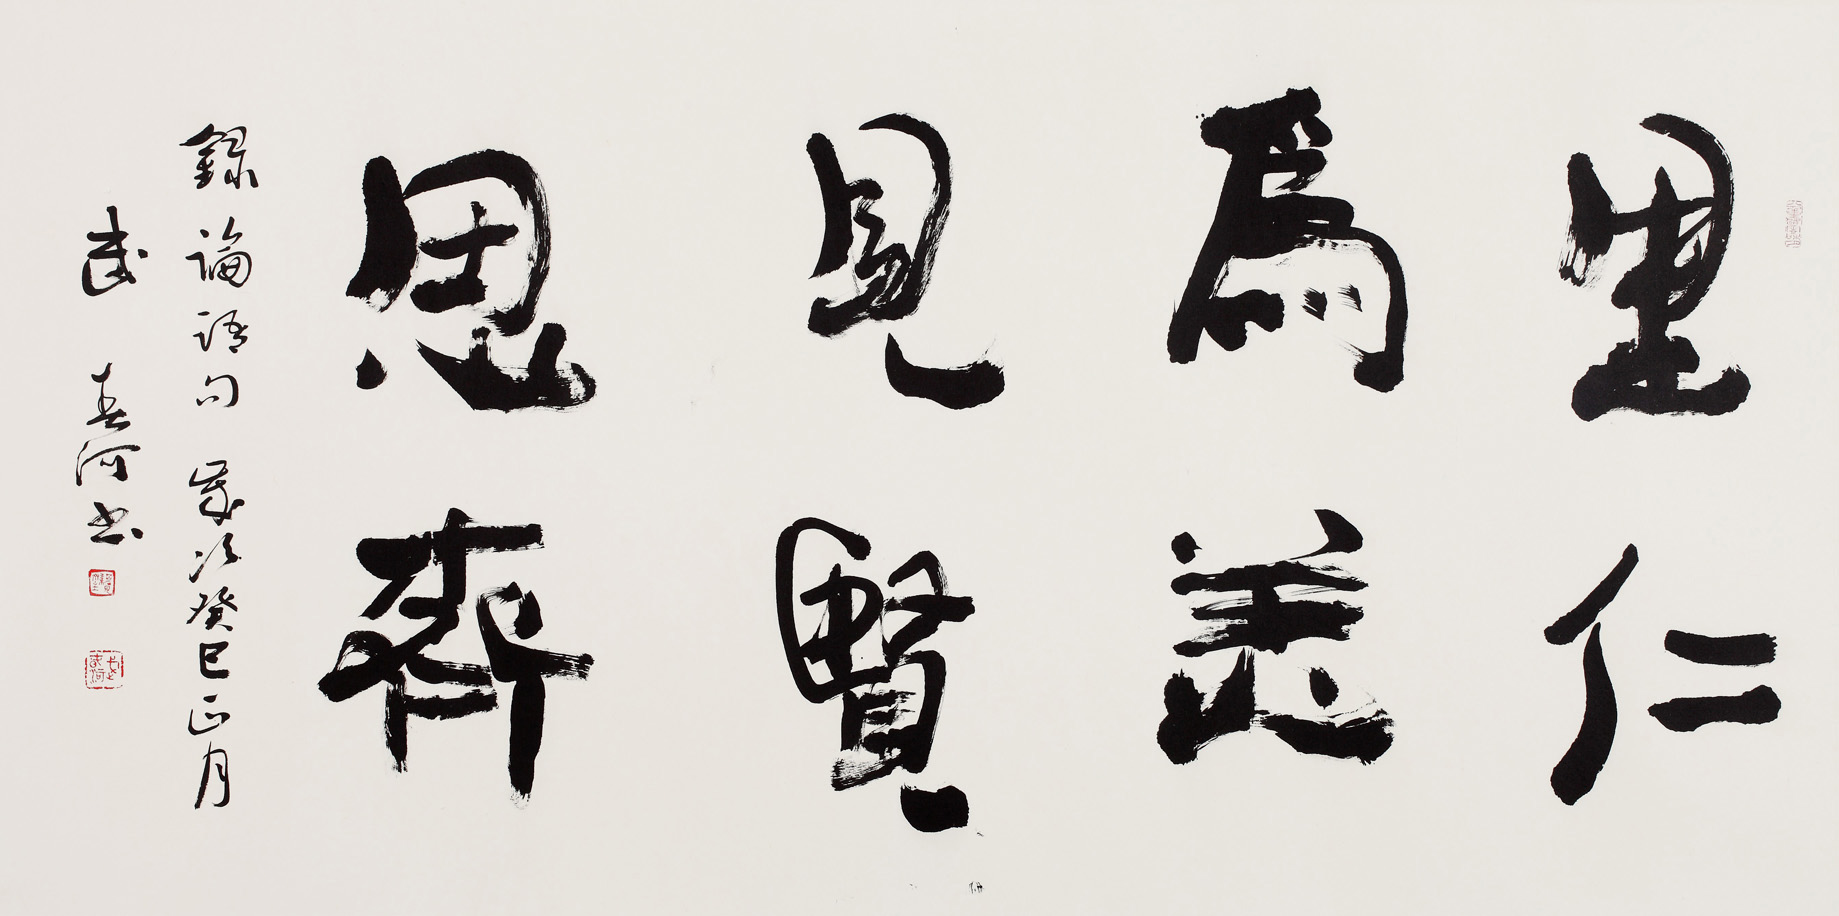 里仁
為美
見賢
思齊
錄論語句 歲次癸巳正月
武春河書